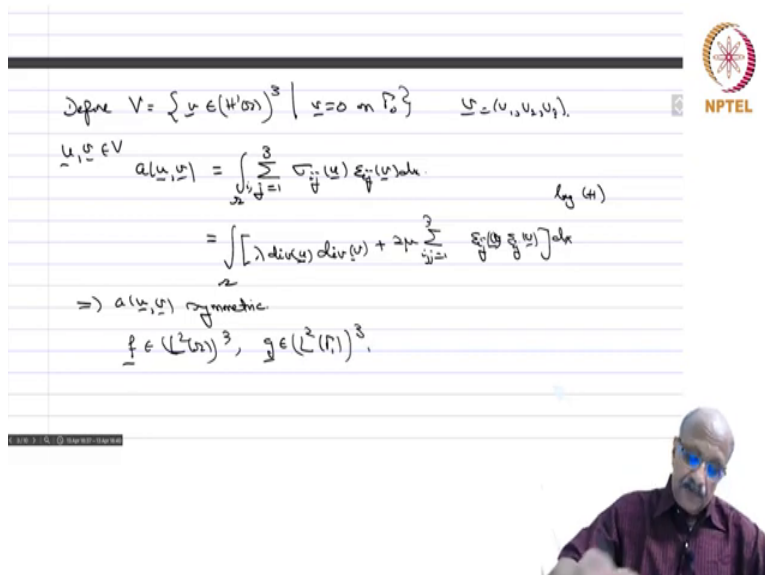 Define V = { v ∈ (H¹(Ω))³ | v = 0 on Γ₀ }   v = (v₁, v₂, v₃).
NPTEL
u, v ∈ V
a(u, v) = ∫_Ω Σ_{i,j=1}^3 σ_ij(u) ε_ij(v) dx.
by (H)
= ∫_Ω [λ div(u) div(v) + 2μ Σ_{i,j=1}^3 ε_ij(u) ε_ij(v)] dx
⇒) a(u, v) symmetric.
f ∈ (L²(Ω))³, g ∈ (L²(Γ₁))³.